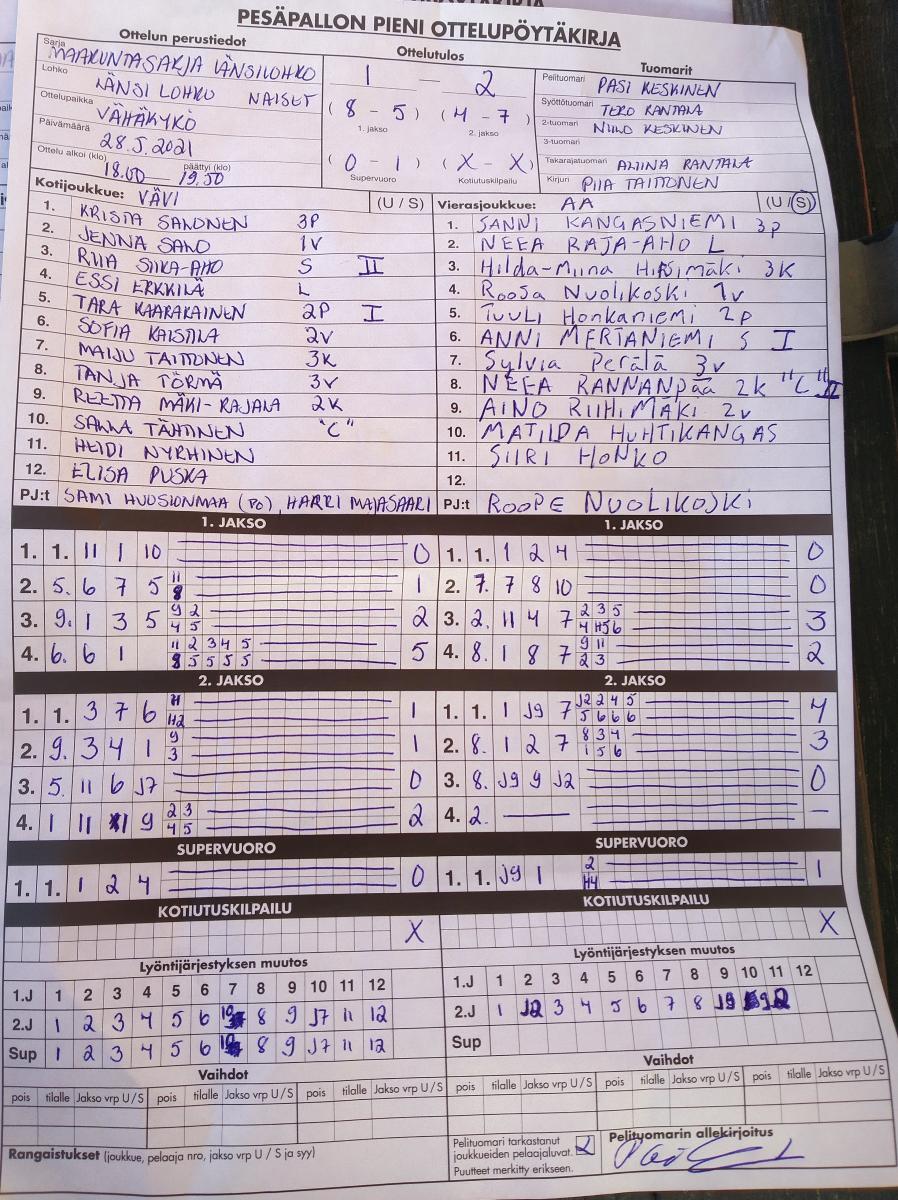 PESÄPALLON PIENI OTTELUPÖYTÄKIRJA
Ottelun perustiedot
Ottelutulos
Tuomarit
Sarja MAAKUNTASARJA LÄNSILOHKO
Lohko LÄNSI LOHKO NAISET
Ottelupaikka VÄHÄKYRÖ
Päivämäärä 28.5.2021
Ottelu alkoi (klo) 18.00 päättyi (klo) 19.50
1 — 2
(8 - 5) (4 - 7)
1. jakso 2. jakso
(0 - 1) (X - X)
Supervuoro Kotiutuskilpailu
Pelituomari PASI KESKINEN
Syöttötuomari TERO RANTALA
2-tuomari NIILO KESKINEN
3-tuomari
Takarajatuomari ALIINA RANTALA
Kirjuri PIIA TAITTONEN
Kotijoukkue: VÄVI (U / S)
1. KRISTA SALONEN 3P
2. JENNA SALO 1V
3. RIIA SIIKA-AHO S II
4. ESSI ERKKILÄ L
5. TARA KAARAKAINEN 2P I
6. SOFIA KAISTILA 2V
7. MAIJU TAITTONEN 3K
8. TANJA TÖRMÄ 3V
9. REETTA MÄKI-RAJALA 2K
10. SANNA TÄHTINEN "C"
11. HEIDI NYRHINEN
12. ELISA PUSKA
PJ:t SAMI HUOSIONMAA (PO), HARRI MAJASAARI
Vierasjoukkue: AA (U / S)
1. SANNI KANGASNIEMI 3P
2. NEEA RAJA-AHO L
3. Hilda-Miina Hirsimäki 3K
4. Roosa Nuolikoski 1v
5. Tuuli Honkaniemi 2p
6. ANNI MERTANIEMI S I
7. Sylvia Perälä 3v
8. NEEA RANNANpää 2k "C" II
9. AINO RIIHIMÄKI 2v
10. MATILDA HUHTIKANGAS
11. SIIRI HONKO
12.
PJ:t ROOPE NUOLIKOSKI
1. JAKSO
1. 1. 11 1 10 0
2. 5. 6 7 5 11 8 1
3. 9. 1 3 5 9 2 4 5 2
4. 6. 6 1 11 2 3 4 5 8 5 5 5 5 5
1. JAKSO
1. 1. 1 2 4 0
2. 7. 7 8 10 0
3. 2. 11 4 7 2 3 5 4 H5 6 3
4. 8. 1 8 7 9 11 2 3 2
2. JAKSO
1. 1. 3 7 6 H2 1
2. 9. 3 4 1 9 3 1
3. 5. 11 6 J7 0
4. 1 11 9 2 3 4 5 2
2. JAKSO
1. 1. 1 J9 7 J2 2 4 5 5 6 6 6 4
2. 8. 1 2 7 8 3 4 1 5 6 3
3. 8. J9 9 J2 0
4. 2. — —
SUPERVUORO
1. 1. 1 2 4 0
SUPERVUORO
1. 1. J9 1 2 H4 1
KOTIUTUSKILPAILU
X
KOTIUTUSKILPAILU
X
Lyöntijärjestyksen muutos
1.J 1 2 3 4 5 6 7 8 9 10 11 12
2.J 1 2 3 4 5 6 10 8 9 J7 11 12
Sup 1 2 3 4 5 6 10 8 9 J7 11 12
Lyöntijärjestyksen muutos
1.J 1 2 3 4 5 6 7 8 9 10 11 12
2.J 1 J2 3 4 5 6 7 8 J9 9 2
Sup
Vaihdot
pois tilalle Jakso vrp U / S pois tilalle Jakso vrp U / S pois tilalle Jakso vrp U / S
Vaihdot
pois tilalle Jakso vrp U / S pois tilalle Jakso vrp U / S pois tilalle Jakso vrp U / S
Rangaistukset (joukkue, pelaaja nro, jakso vrp U / S ja syy)
Pelituomari tarkastanut
joukkueiden pelaajaluvat.
Puutteet merkitty erikseen.
Pelituomarin allekirjoitus